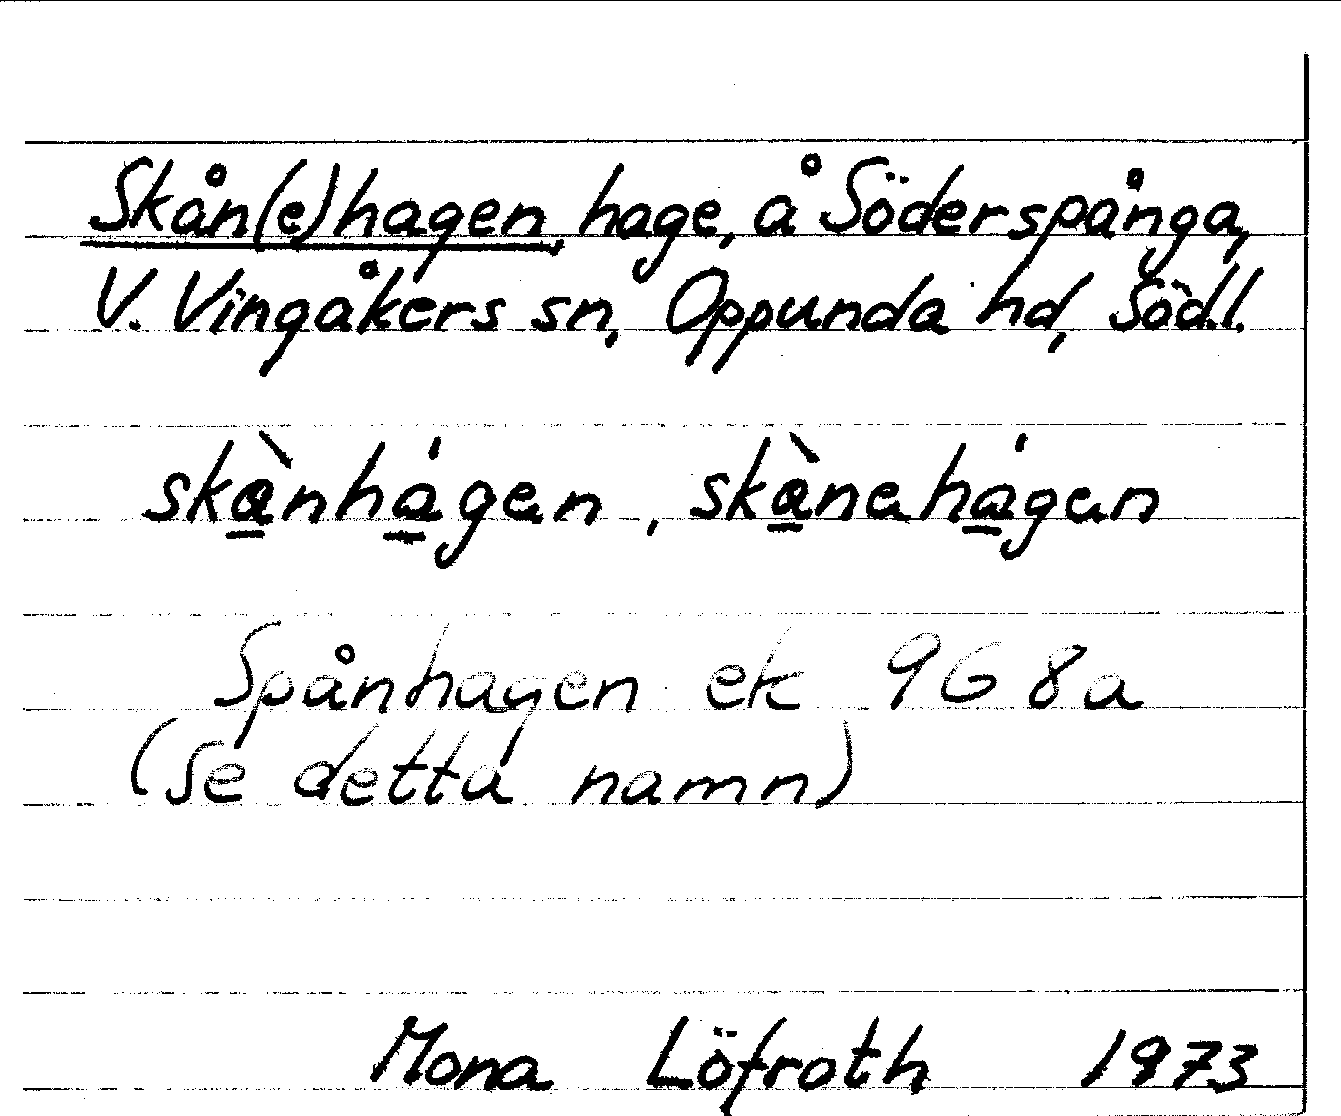 Skån(e)hagen, hage, å Söderspånga,
V. Vingåkers sn, Oppunda hd, Södl.
skànhágen, skànehágen
Spånhagen ek 968a
(Se detta namn)
Mona Löfroth 1973